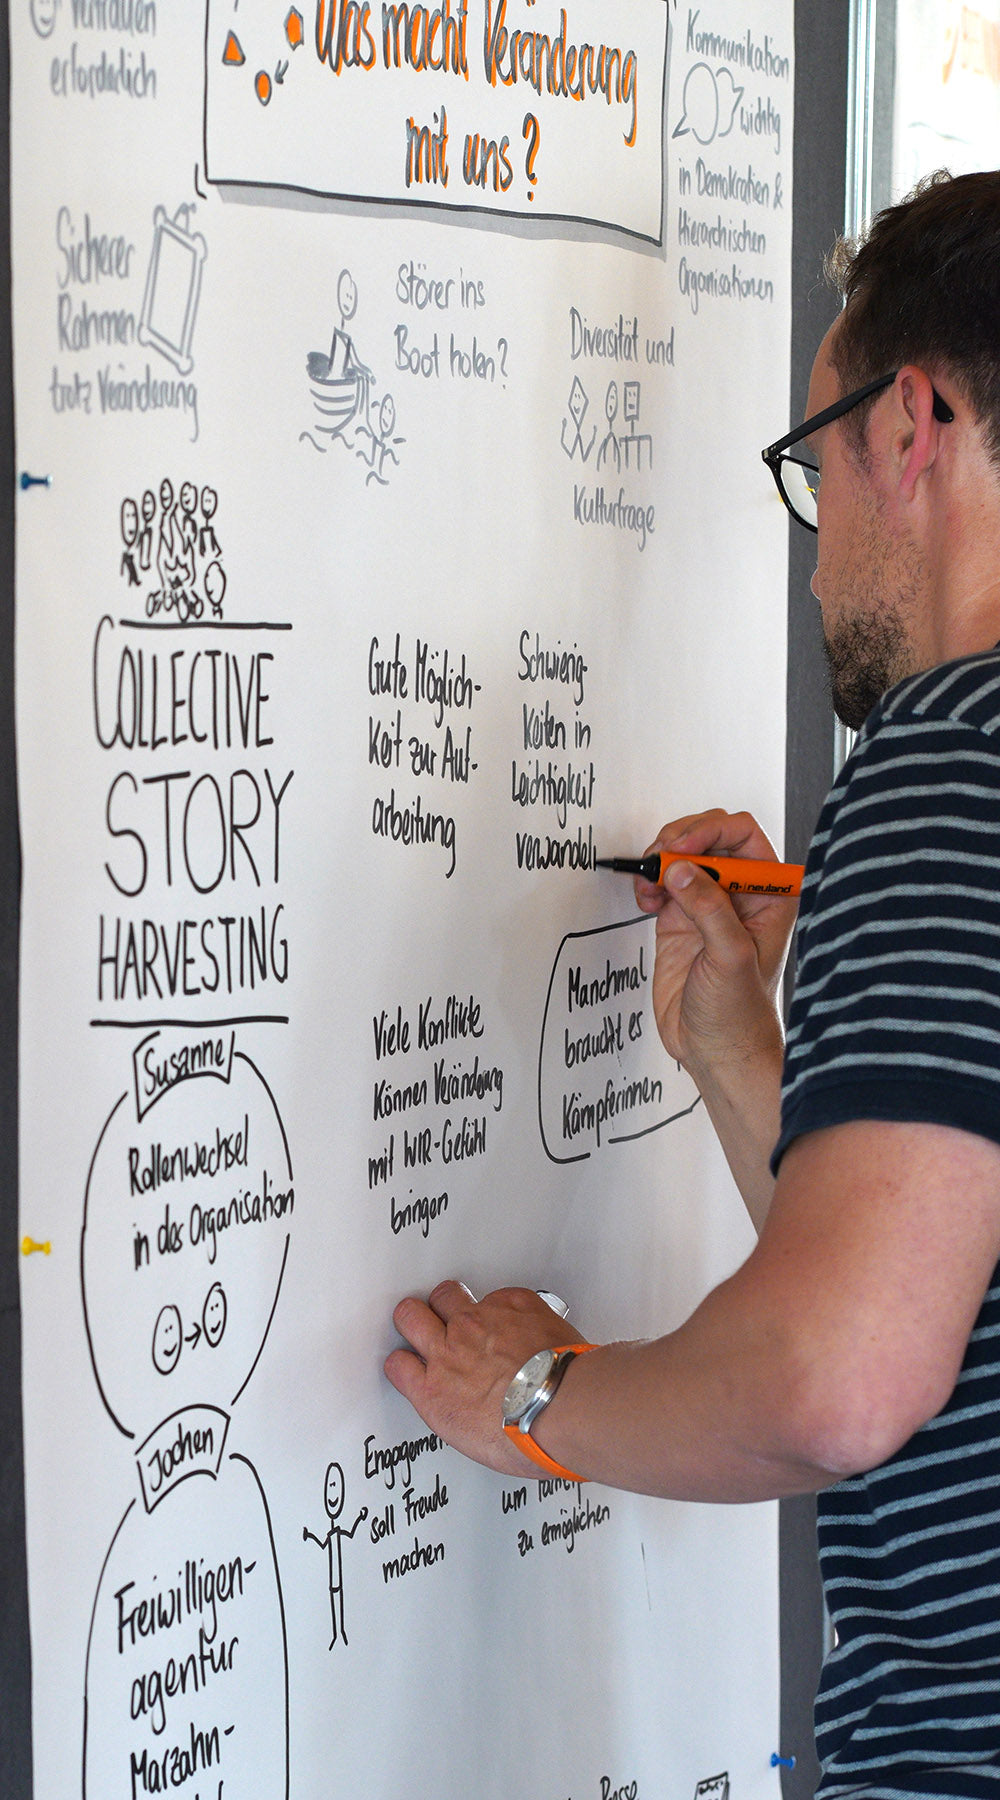 Vertrauen
erforderlich
Was macht Veränderung
mit uns?
Kommunikation
wichtig
in Demokratien &
Hierarchischen
Organisationen
Sicherer
Rahmen
trotz Veränderung
Störer ins
Boot holen?
Diversität und
Kulturfrage
COLLECTIVE
STORY
HARVESTING
Gute Möglich-
keit zur Auf-
arbeitung
Schwierig-
keiten in
Leichtigkeit
verwandeln
neuland
Manchmal
braucht es
Kämpferinnen
Viele Konflikte
können Veränderung
mit WIR-Gefühl
bringen
Susanne
Rollenwechsel
in des Organisation
Jochen
Freiwilligen-
agentur
Marzahn-
Engagement
soll Freude
machen
um
zu ermöglichen
Presse